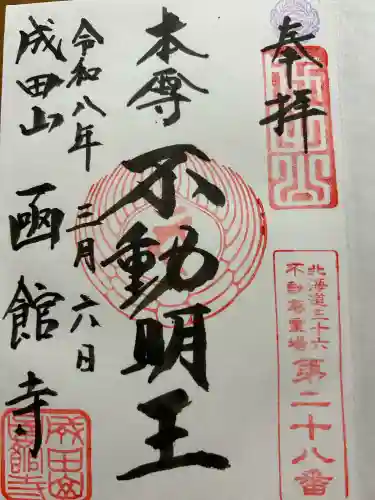 奉拝
成田山
北海道三十六
不動尊霊場
第二十八番
本尊
不動明王
令和八年
三月六日
成田山
函館寺
成田山
函館寺